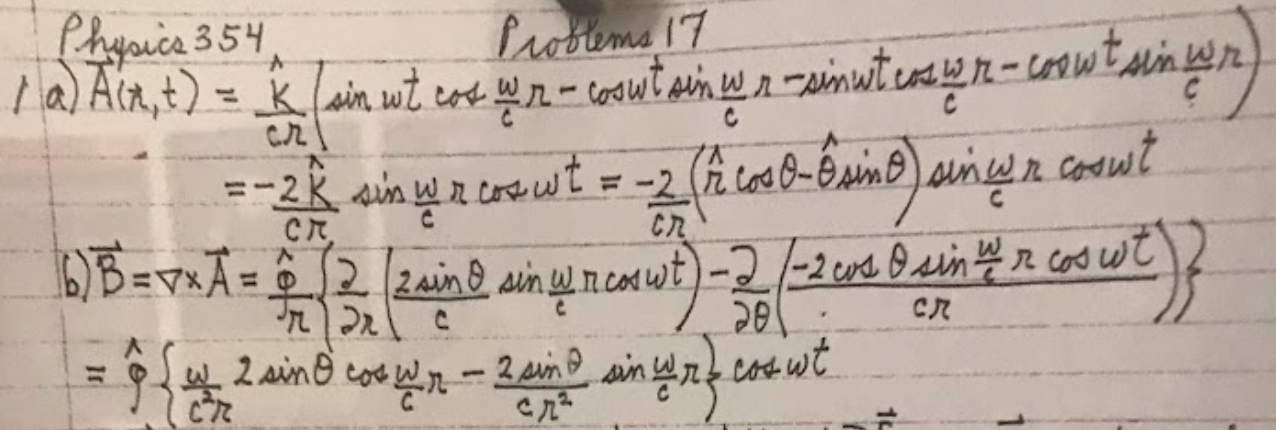 Physics 354 Problems 17
1 a) $\vec{A}(r,t) = \frac{\hat{k}}{cr}\left(\sin \omega t \cos \frac{\omega}{c} r - \cos \omega t \sin \frac{\omega}{c} r - \sin \omega t \cos \frac{\omega}{c} r - \cos \omega t \sin \frac{\omega}{c} r\right)$
$= -\frac{2\hat{k}}{cr} \sin \frac{\omega}{c} r \cos \omega t = \frac{-2}{cr}\left(\hat{r} \cos \theta - \hat{\theta} \sin \theta\right) \sin \frac{\omega}{c} r \cos \omega t$
b) $\vec{B} = \nabla \times \vec{A} = \frac{\hat{\varphi}}{r}\left\{\frac{\partial}{\partial r}\left(\frac{2 \sin \theta}{c} \sin \frac{\omega}{c} r \cos \omega t\right) - \frac{\partial}{\partial \theta}\left(\frac{-2 \cos \theta \sin \frac{\omega}{c} r \cos \omega t}{cr}\right)\right\}$
$= \hat{\varphi}\left\{\frac{\omega}{c^2 r} 2 \sin \theta \cos \frac{\omega}{c} r - \frac{2 \sin \theta}{c r^2} \sin \frac{\omega}{c} r\right\} \cos \omega t$